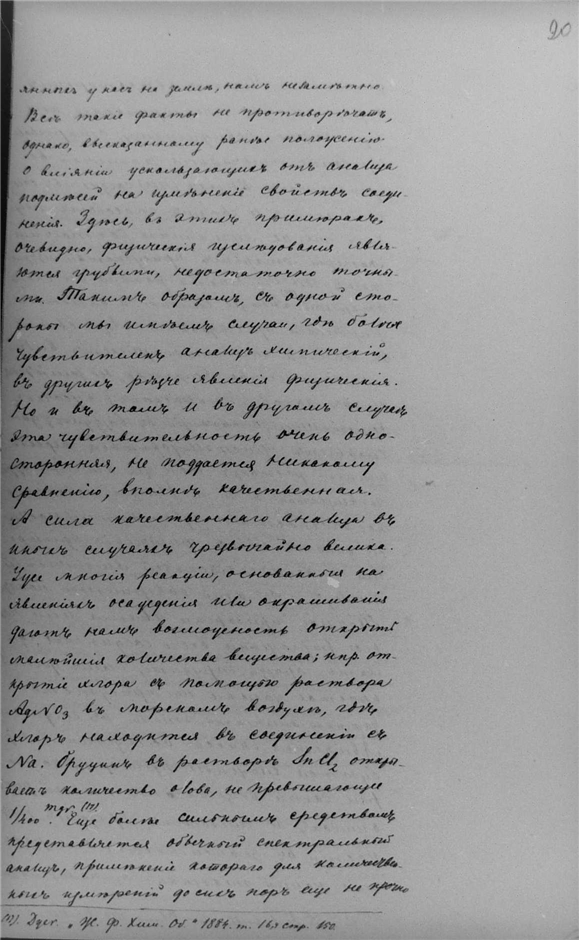 20
янныхъ у насъ на землѣ, намъ незамѣтно.
Всѣ такіе факты не противорѣчатъ,
однако, высказанному ранѣе положенію
о вліяніи ускользающихъ отъ анализа
подмѣсей на измѣненіе свойствъ соеди-
ненія. Здѣсь, въ этихъ примѣрахъ,
очевидно, физическія изслѣдованія явля-
ются грубыми, недостаточно точны-
ми. Такимъ образомъ, съ одной сто-
роны мы имѣемъ случаи, гдѣ болѣе
чувствителенъ анализъ химическій,
въ другихъ рѣзче явленія физическія.
Но и въ томъ и въ другомъ случаѣ
эта чувствительность очень одно-
сторонняя, не поддается никакому
сравненію, вполнѣ качественная.
А сила качественнаго анализа въ
иныхъ случаяхъ чрезвычайно велика.
Уже многія реакціи, основанныя на
явленіяхъ осажденія или окрашиванія
даютъ намъ возможность открыть
малѣйшія количества вещества; нпр. от-
крытіе хлора съ помощью раствора
AgNO3 въ морскомъ воздухѣ, гдѣ
хлоръ находится въ соединеніи съ
Na. Бруцинъ въ растворѣ SnCl2 откры-
ваетъ количество олова, не превышающее
1/400 mgr. (17). Еще болѣе сильнымъ средствомъ
представляется обычный спектральный
анализъ, примѣненіе котораго для количествен-
ныхъ измѣреній до сихъ поръ еще не прочно
(17). "Ж. Ф. Хим. Об." 1884. т. 16 стр.